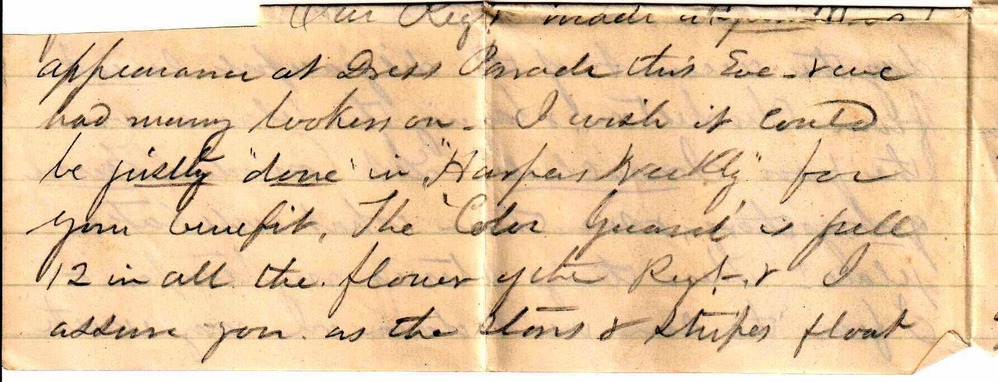 Our Regt made a
appearance at Dress Parade this Eve - & we
had many lookers on - I wish it could
be justly "done" in "Harpers Weekly" for
your benefit. The "Color Guard" is full
12 in all the flower of the Regt. & I
assure you as the Stars & Stripes float